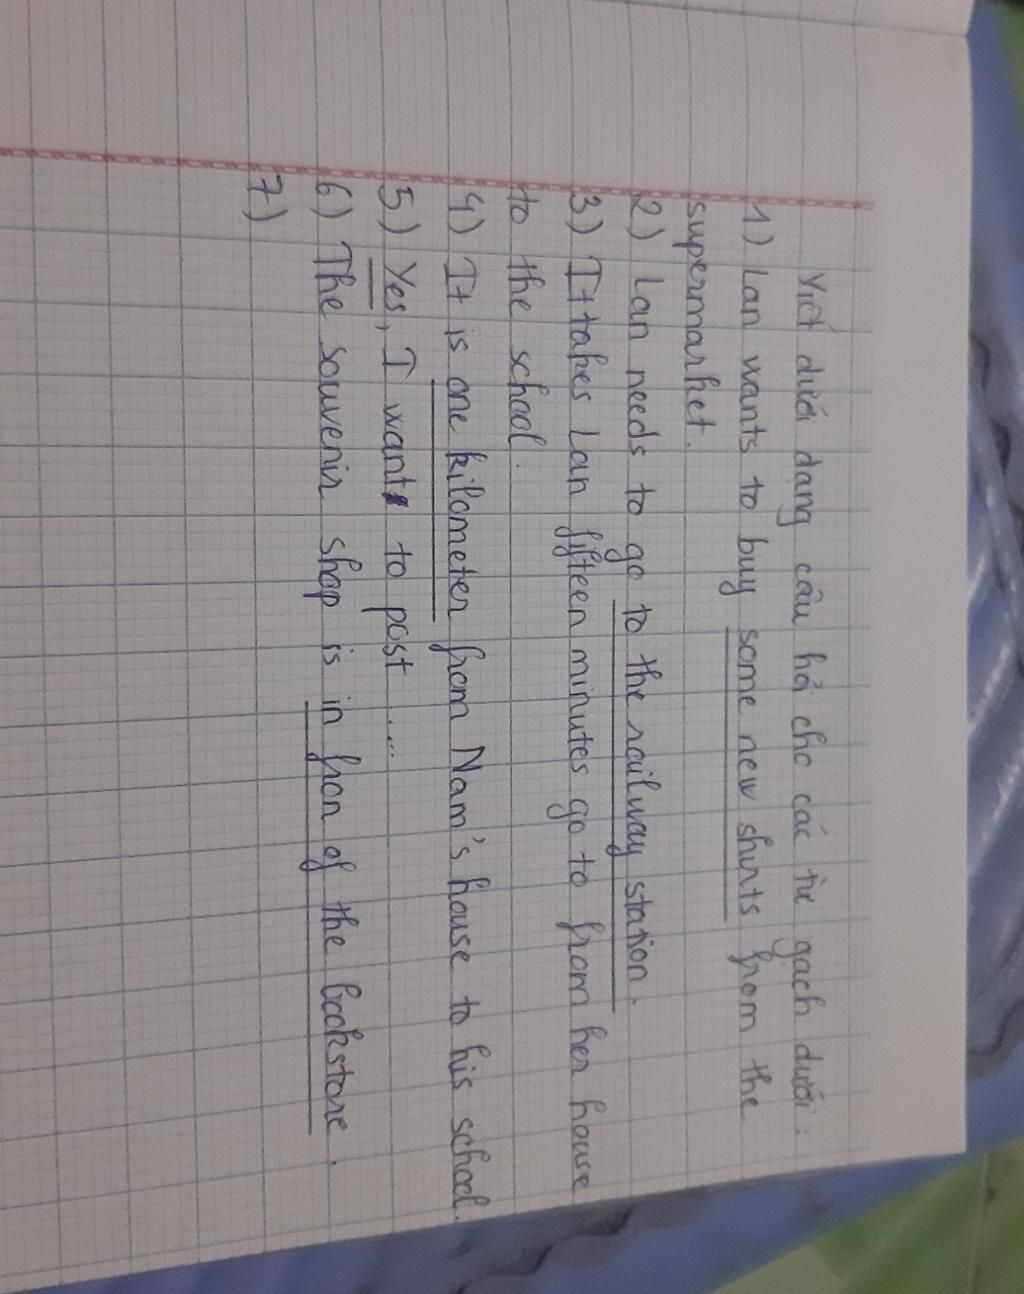 Viết dưới dạng câu hỏi cho các từ gạch dưới:
1) Lan wants to buy some new shirts from the
supermarket.
2) Lan needs to go to the railway station.
3) It takes Lan fifteen minutes go to from her house
to the school.
4) It is one kilometer from Nam's house to his school.
5) Yes, I want to post .....
6) The souvenir shop is in fron of the bookstore.
7)